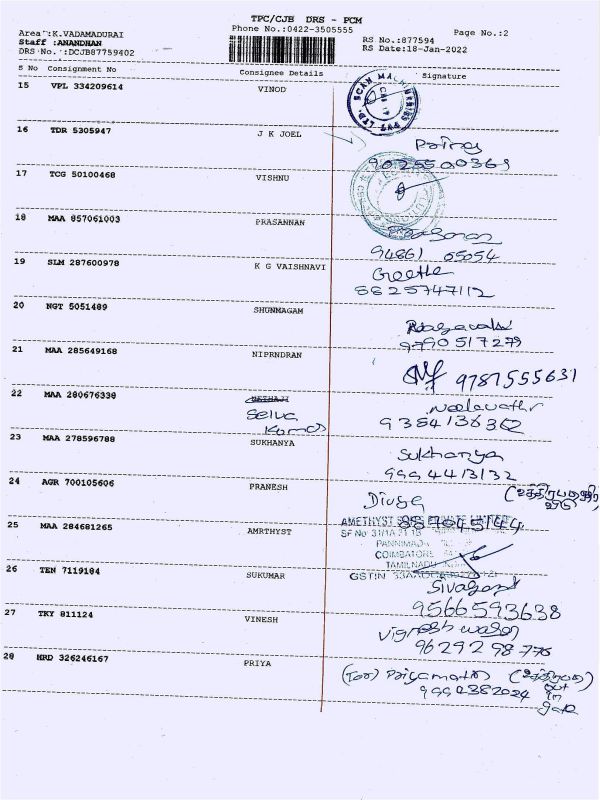 TPC/CJB DRS - PCM
Area :K.VADAMADURAI
Phone No.:0422-3505555
Page No.:2
Staff :ANANDHAN
RS No.:877594
DRS No. :DCJB87759402
RS Date:18-Jan-2022
S No Consignment No Consignee Details Signature
15 VPL 334209614 VINOD
SCAN MACHINERIES PVT. LTD.
16 TDR 5305947 J K JOEL
9025500369
17 TCG 50100468 VISHNU
18 MAA 857061003 PRASANNAN
94861 05054
19 SLM 287600978 K G VAISHNAVI
Geetha
8825747112
20 NGT 5051489 SHUNMAGAM
9790517279
21 MAA 285649168 NIPRNDRAN
9787555631
22 MAA 280676338 METHAJI
Selva
Kumar
9384136362
23 MAA 278596788 SUKHANYA
Sukhanya
9994413132
24 AGR 700105606 PRANESH
Divya
25 MAA 284681265 AMRTHYST
AMETHYST
SF No 31/1A
PANNIMAD
COIMBATORE
TAMILNADU
GSTIN
26 TEN 7119184 SUKUMAR
9566593638
27 TKY 811124 VINESH
9629298776
28 HRD 326246167 PRIYA
9992382024
gate